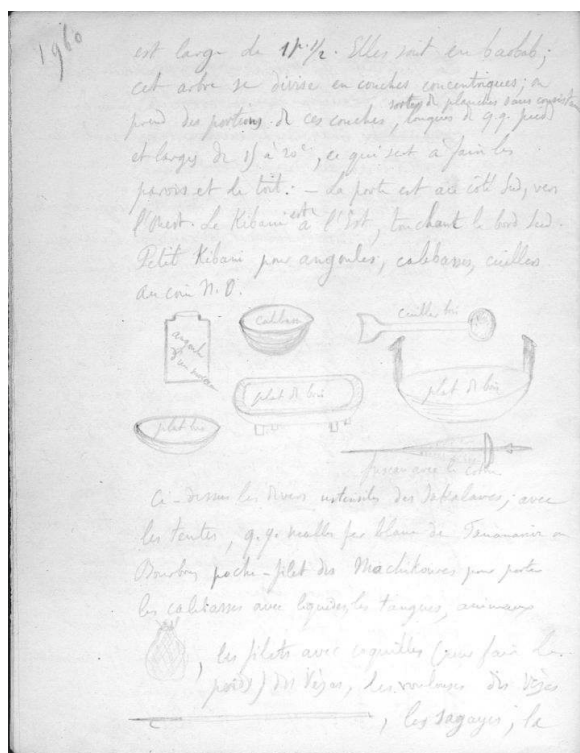 1960
est large de 1p. 1/2. Elles sont en baobab;
cet arbre se divise en couches concentriques; on
sortes de planches sans consistance
prend des portions de ces couches, longues de q.q. pieds
et larges de 15 à 20c, ce qui sert à faire les
parois et le toit: — La porte est au côté Sud, vers
l'Ouest. Le Kibani est à l'Est, touchant le bord Sud.
Petit Kibani pour angoules, calebasses, cuillers
au coin N.O.
calebasse
cuiller bois
plat de bois
plat de bois
plat bois
fuseau avec le coton
Ci-dessus les divers ustensiles des Sakalaves; avec
les tentes, q.q. malles fer blanc de Tananarive ou
Bourbon, poche-filet des Machikoures pour porter
les calebasses avec liquides, les tangues, animaux
, les filets avec coquilles (pour faire le
poids) des Vézos, les des Vézos
, les sagayes; la